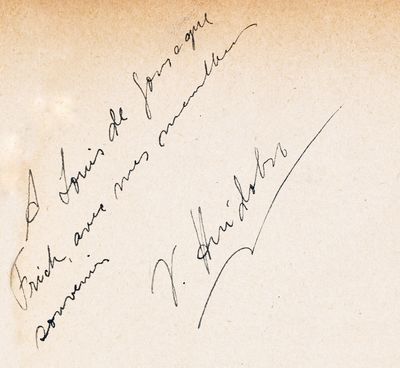 A Louis de Gonzague
Frick, avec mes meilleurs
souvenirs
V. Huidobro